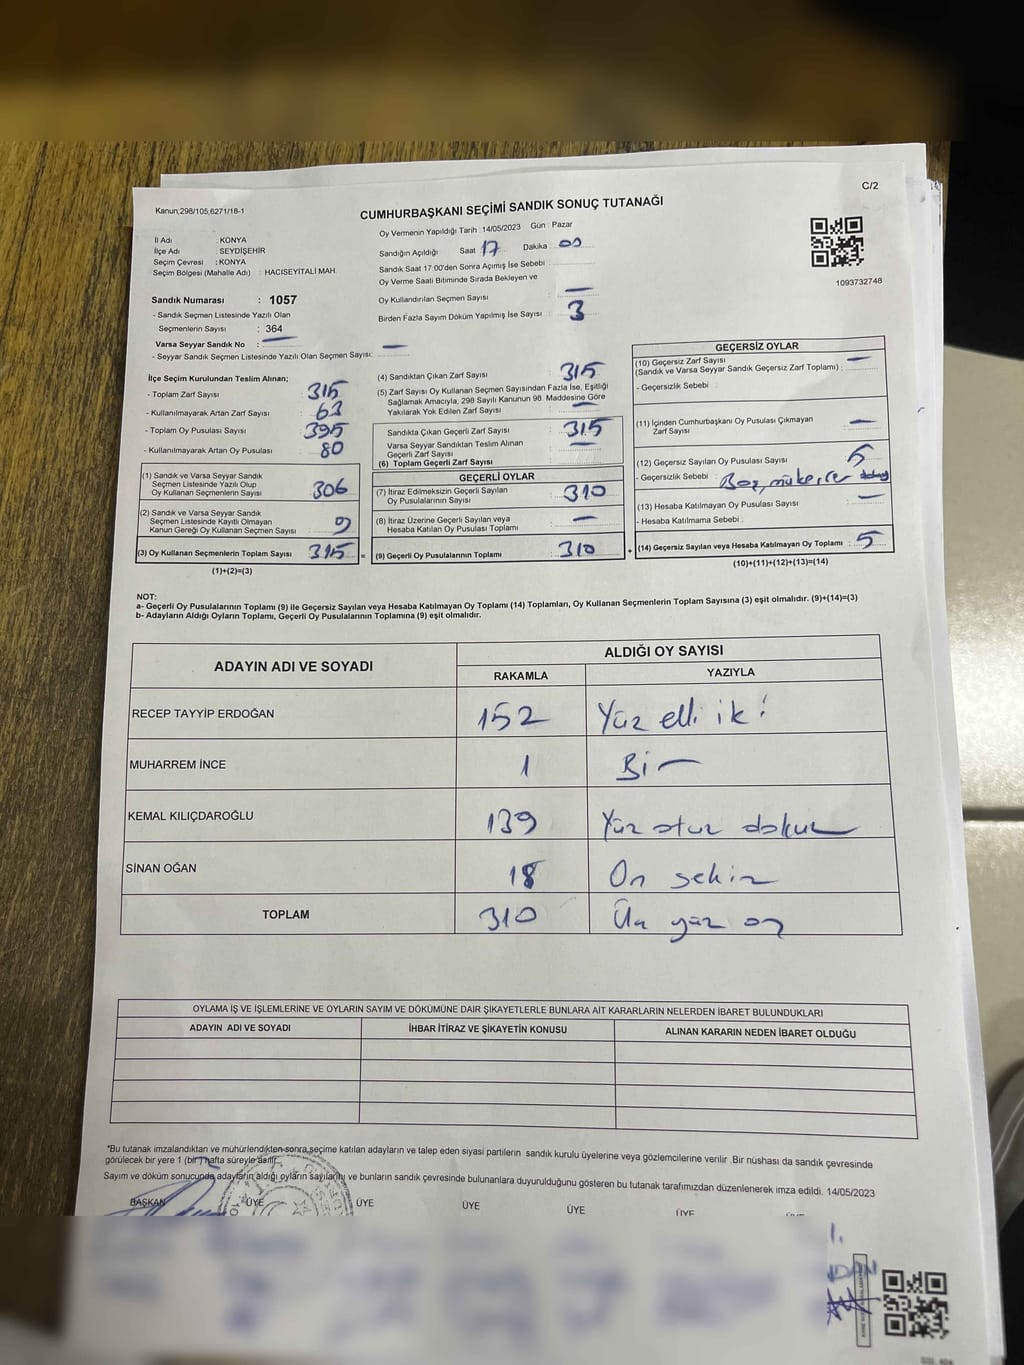 C/2
Kanun;298/105,6271/18-1
CUMHURBAŞKANI SEÇİMİ SANDIK SONUÇ TUTANAĞI
Oy Vermenin Yapıldığı Tarih : 14/05/2023 Gün : Pazar
İl Adı : KONYA
İlçe Adı : SEYDİŞEHİR
Seçim Çevresi : KONYA
Seçim Bölgesi (Mahalle Adı) : HACISEYİTALİ MAH.
Sandık Numarası : 1057
- Sandık Seçmen Listesinde Yazılı Olan
Seçmenlerin Sayısı : 364
Varsa Seyyar Sandık No : —
- Seyyar Sandık Seçmen Listesinde Yazılı Olan Seçmen Sayısı: —
Sandığın Açıldığı Saat 17 Dakika : 00
Sandık Saat 17:00'den Sonra Açımış İse Sebebi :
Oy Verme Saati Bitiminde Sırada Bekleyen ve
Oy Kullandırılan Seçmen Sayısı : —
Birden Fazla Sayım Döküm Yapılmış İse Sayısı : 3
1093732748
İlçe Seçim Kurulundan Teslim Alınan;
- Toplam Zarf Sayısı 315
- Kullanılmayarak Artan Zarf Sayısı : 63
- Toplam Oy Pusulası Sayısı : 395
- Kullanılmayarak Artan Oy Pusulası : 80
(1) Sandık ve Varsa Seyyar Sandık
Seçmen Listesinde Yazılı Olup
Oy Kullanan Seçmenlerin Sayısı : 306
(2) Sandık ve Varsa Seyyar Sandık
Seçmen Listesinde Kayıtlı Olmayan
Kanun Gereği Oy Kullanan Seçmen Sayısı : 9
(3) Oy Kullanan Seçmenlerin Toplam Sayısı : 315 =
(1)+(2)=(3)
(4) Sandıktan Çıkan Zarf Sayısı : 315
(5) Zarf Sayısı Oy Kullanan Seçmen Sayısından Fazla İse, Eşitliği
Sağlamak Amacıyla; 298 Sayılı Kanunun 98. Maddesine Göre
Yakılarak Yok Edilen Zarf Sayısı : —
Sandıkta Çıkan Geçerli Zarf Sayısı : 315
Varsa Seyyar Sandıktan Teslim Alınan
Geçerli Zarf Sayısı : —
(6) Toplam Geçerli Zarf Sayısı
GEÇERLİ OYLAR
(7) İtiraz Edilmeksizin Geçerli Sayılan
Oy Pusulalarının Sayısı : 310
(8) İtiraz Üzerine Geçerli Sayılan veya
Hesaba Katılan Oy Pusulası Toplamı : —
(9) Geçerli Oy Pusulalarının Toplamı : 310 +
GEÇERSİZ OYLAR
(10) Geçersiz Zarf Sayısı
(Sandık ve Varsa Seyyar Sandık Geçersiz Zarf Toplamı) : —
- Geçersizlik Sebebi :
(11) İçinden Cumhurbaşkanı Oy Pusulası Çıkmayan
Zarf Sayısı : —
(12) Geçersiz Sayılan Oy Pusulası Sayısı : 5
- Geçersizlik Sebebi : Boş, mükerrer
(13) Hesaba Katılmayan Oy Pusulası Sayısı : —
- Hesaba Katılmama Sebebi :
(14) Geçersiz Sayılan veya Hesaba Katılmayan Oy Toplamı : 5
(10)+(11)+(12)+(13)=(14)
NOT:
a- Geçerli Oy Pusulalarının Toplamı (9) ile Geçersiz Sayılan veya Hesaba Katılmayan Oy Toplamı (14) Toplamları, Oy Kullanan Seçmenlerin Toplam Sayısına (3) eşit olmalıdır. (9)+(14)=(3)
b- Adayların Aldığı Oyların Toplamı, Geçerli Oy Pusulalarının Toplamına (9) eşit olmalıdır.
ADAYIN ADI VE SOYADI ALDIĞI OY SAYISI
RAKAMLA YAZIYLA
RECEP TAYYİP ERDOĞAN 152 Yüz elli iki
MUHARREM İNCE 1 Bir
KEMAL KILIÇDAROĞLU 139 Yüz otuz dokuz
SİNAN OĞAN 18 On sekiz
TOPLAM 310 Üç yüz on
OYLAMA İŞ VE İŞLEMLERİNE VE OYLARIN SAYIM VE DÖKÜMÜNE DAİR ŞİKAYETLERLE BUNLARA AİT KARARLARIN NELERDEN İBARET BULUNDUKLARI
ADAYIN ADI VE SOYADI İHBAR İTİRAZ VE ŞİKAYETİN KONUSU ALINAN KARARIN NEDEN İBARET OLDUĞU
*Bu tutanak imzalandıktan ve mühürlendikten sonra,seçime katılan adayların ve talep eden siyasi partilerin sandık kurulu üyelerine veya gözlemcilerine verilir .Bir nüshası da sandık çevresinde
görülecek bir yere 1 (bir) hafta süreyle asılır.
Sayım ve döküm sonucunda adayların aldığı oyların sayılarını ve bunların sandık çevresinde bulunanlara duyurulduğunu gösteren bu tutanak tarafımızdan düzenlenerek imza edildi. 14/05/2023
BAŞKAN ÜYE ÜYE ÜYE ÜYE ÜYE